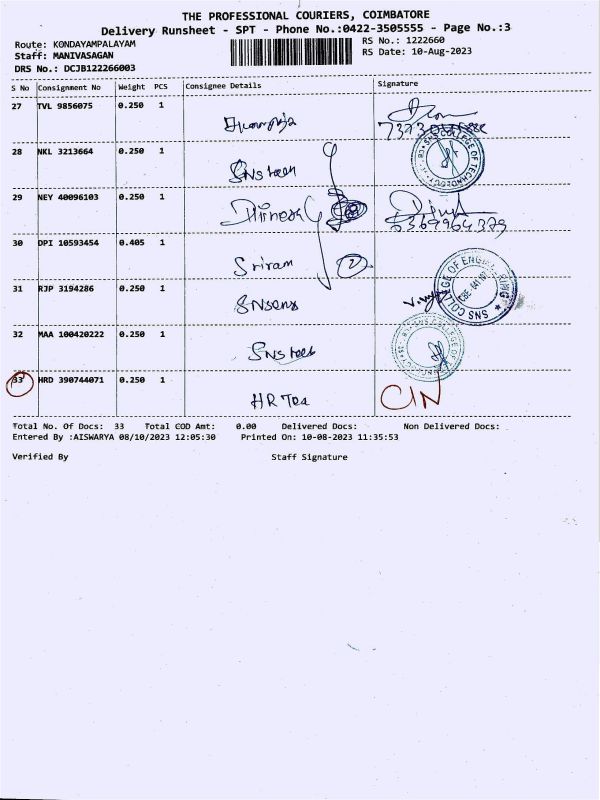 THE PROFESSIONAL COURIERS, COIMBATORE
Delivery Runsheet - SPT - Phone No.:0422-3505555 - Page No.:3
Route: KONDAYAMPALAYAM
RS No.: 1222660
Staff: MANIVASAGAN
RS Date: 10-Aug-2023
DRS No.: DCJB122266003
S No Consignment No Weight PCS Consignee Details Signature
27 TVL 9856075 0.250 1
28 NKL 3213664 0.250 1
SNS tech
SNS COLLEGE OF TECHNOLOGY
29 NEY 40096103 0.250 1
30 DPI 10593454 0.405 1
Sriram 2
31 RJP 3194286 0.250 1
SNSens
SNS COLLEGE OF ENGINEERING
32 MAA 100420222 0.250 1
SNS tech
33 HRD 390744071 0.250 1
HR Tea CIN
Total No. Of Docs: 33 Total COD Amt: 0.00 Delivered Docs: Non Delivered Docs:
Entered By :AISWARYA 08/10/2023 12:05:30 Printed On: 10-08-2023 11:35:53
Verified By Staff Signature